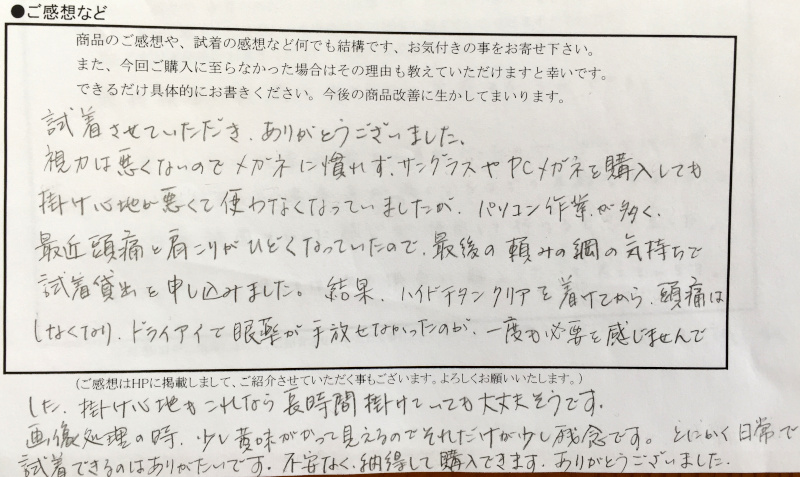 ●ご感想など
商品のご感想や、試着の感想など何でも結構です、お気付きの事をお寄せ下さい。
また、今回ご購入に至らなかった場合はその理由も教えていただけますと幸いです。
できるだけ具体的にお書きください。今後の商品改善に生かしてまいります。
試着させていただき、ありがとうございました。
視力は悪くないのでメガネに慣れず、サングラスやPCメガネを購入しても
掛け心地が悪くて使わなくなっていましたが、パソコン作業が多く、
最近頭痛と肩こりがひどくなっていたので、最後の頼みの綱の気持ちで
試着貸出を申し込みました。結果、ハイドチタンクリアを着けてから、頭痛は
しなくなり、ドライアイで眼薬が手放せなかったのが、一度も必要を感じませんで
(ご感想はHPに掲載しまして、ご紹介させていただく事もございます。よろしくお願いいたします。)
した。掛け心地もこれなら長時間掛けていても大丈夫そうです。
画像処理の時、少し黄味がかって見えるのでそれだけが少し残念です。とにかく日常で
試着できるのはありがたいです。不安なく、納得して購入できます。ありがとうございました。